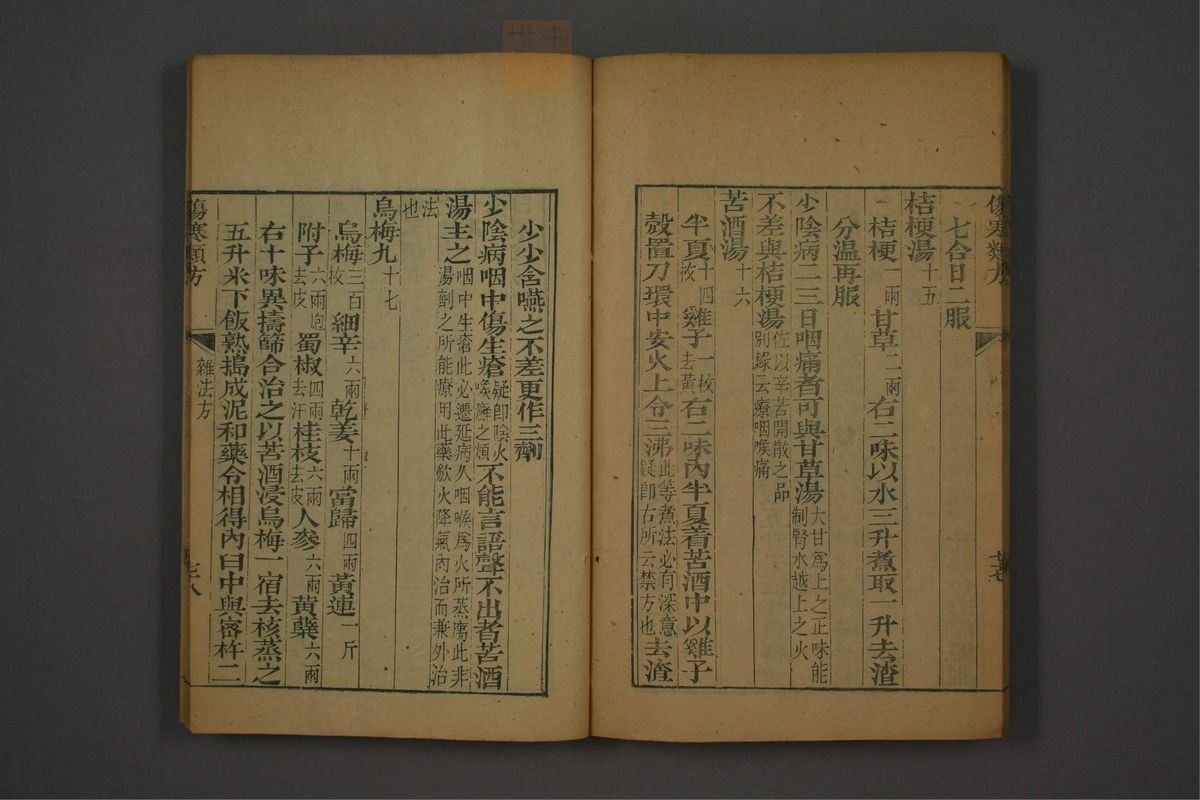 傷寒類方
廿七
七合日二服
桔梗湯十五
桔梗一兩 甘草二兩 右二味以水三升煮取一升去渣
分温再服
少陰病二三日咽痛者可與甘草湯大甘爲上之正味能制腎水越上之火
不差與桔梗湯佐以辛苦開散之品別錄云療咽喉痛
苦酒湯十六
半夏十四枚 雞子一枚去黃 右二味內半夏着苦酒中以雞子
殻置刀環中安火上令三沸此等煮法必有深意疑卽古所云禁方也去渣
少少含嚥之不差更作三劑
少陰病咽中傷生瘡疑卽陰火喉癬之類不能言語聲不出者苦酒
湯主之咽中生瘡此必遷延病久咽喉爲火所蒸腐此非湯劑之所能療用此藥歛火降氣內治而兼外治
法也
烏梅丸十七
烏梅三百枚 細辛六兩 乾姜十兩 當歸四兩 黃連一斤
附子六兩炮去皮 蜀椒四兩去汗 桂枝六兩去皮 人參六兩 黃蘗六兩
右十味異擣篩合治之以苦酒浸烏梅一宿去核蒸之
五升米下飯熟搗成泥和藥令相得內臼中與蜜杵二
傷寒類方
雜法方